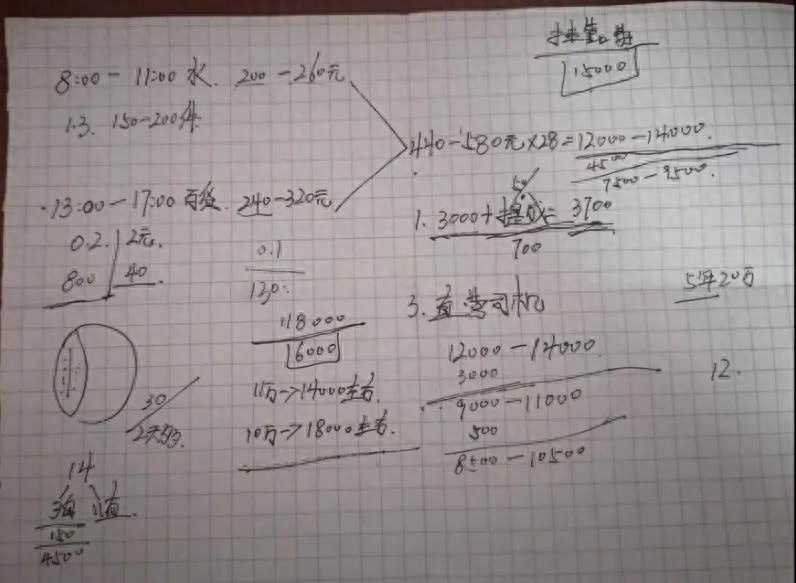 15000
8:00 - 11:00 水. 200 - 260元
1.3. 150-200件
440-580元×28=12000-14000.
4500
7500-9500.
·13:00-17:00 百货. 240-320元
0.2. 2元.
800 40.
0.1
50
1. 3000+提成= 3700
700
3. 直营司机
5年20万
18000
16000
12000-14000.
3000
9000-11000
500
8500-10500
12.
11万→14000左右
10万→18000左右.
30
14
150
4500